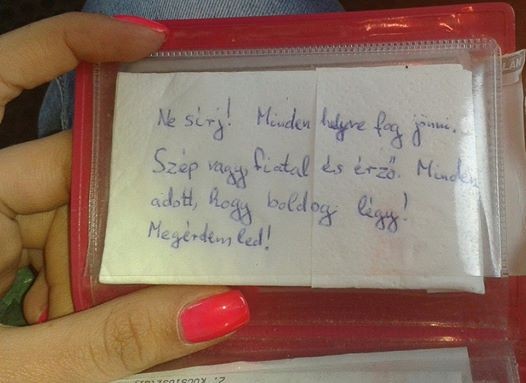 Ne sírj! Minden helyre fog jönni.
Szép vagy, fiatal és érző. Minden
adott, hogy boldog légy!
Megérdemled!